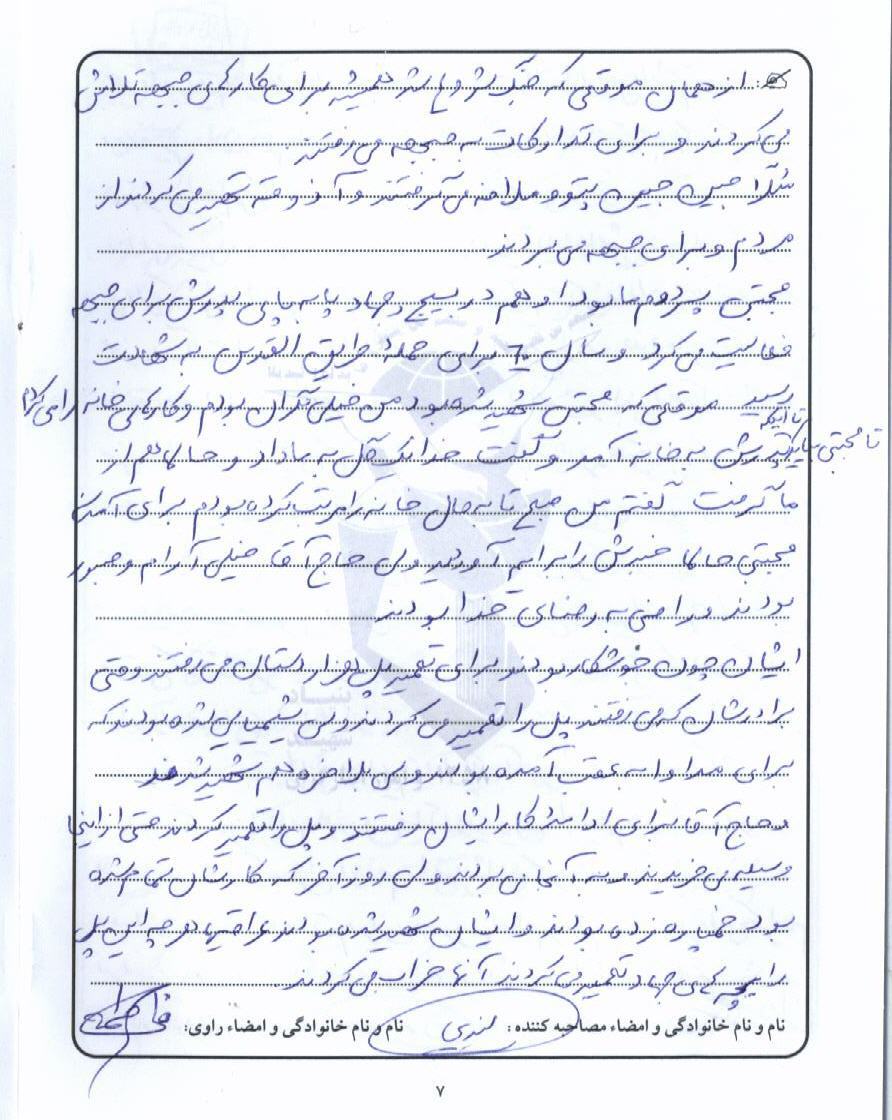 ج: از همان موقعی که جنگ شروع شد همیشه برای کارهای جبهه تلاش
می‌کردند و برای تدارکات به جبهه می‌رفتند.
مثلاً جنس پتو و ملافه می‌گرفتند و آذوقه تهیه می‌کردند از
مردم و برای جبهه می‌بردند.
مجتبی پسر دوم ما بود او هم در بسیج و جهاد پا به پای پدرش برای جبهه
فعالیت می‌کرد و سال 60 برای حملهٔ طریق القدس به شهادت
رسید موقعی که مجتبی شهید شده بود من خیلی نگران بودم و کارهای خانه را می‌کردم
تا مجتبی بیاید تا اینکه پدرش به خانه آمد و گفت خدا یک گل به ما داد و حالا هم از
ما گرفت گفتم من صبح تا به حال خانه را مرتب کرده بودم برای آمدن
مجتبی حالا خبرش را برایم آوردید ولی حاج آقا خیلی آرام و صبور
بودند و راضی به رضای خدا بودند
ایشان چون جوشکار بودند برای تعمیر پل هزار دستان می‌رفتند وقتی
برادرشان که می‌رفتند پل را تعمیر می‌کردند ولی شیمیایی شده بودند که
برای مداوا به عقب آمده بودند ولی بلاخره هم شهید شدند
و حاج آقا برای ادامهٔ کار ایشان رفتند و پل را تعمیر کردند حتی از اینجا
وسیله می‌خریدند و به آنجا می‌بردند ولی روز آخر که کارشان تمام شده
بود خمپاره زده بودند و ایشان شهید شده بودند عراقیها هر چه این پل
را بچه‌های جهاد تعمیر می‌کردند آنها خراب می‌کردند
نام و نام خانوادگی و امضاء مصاحبه کننده: نام و نام خانوادگی و امضاء راوی:
۷